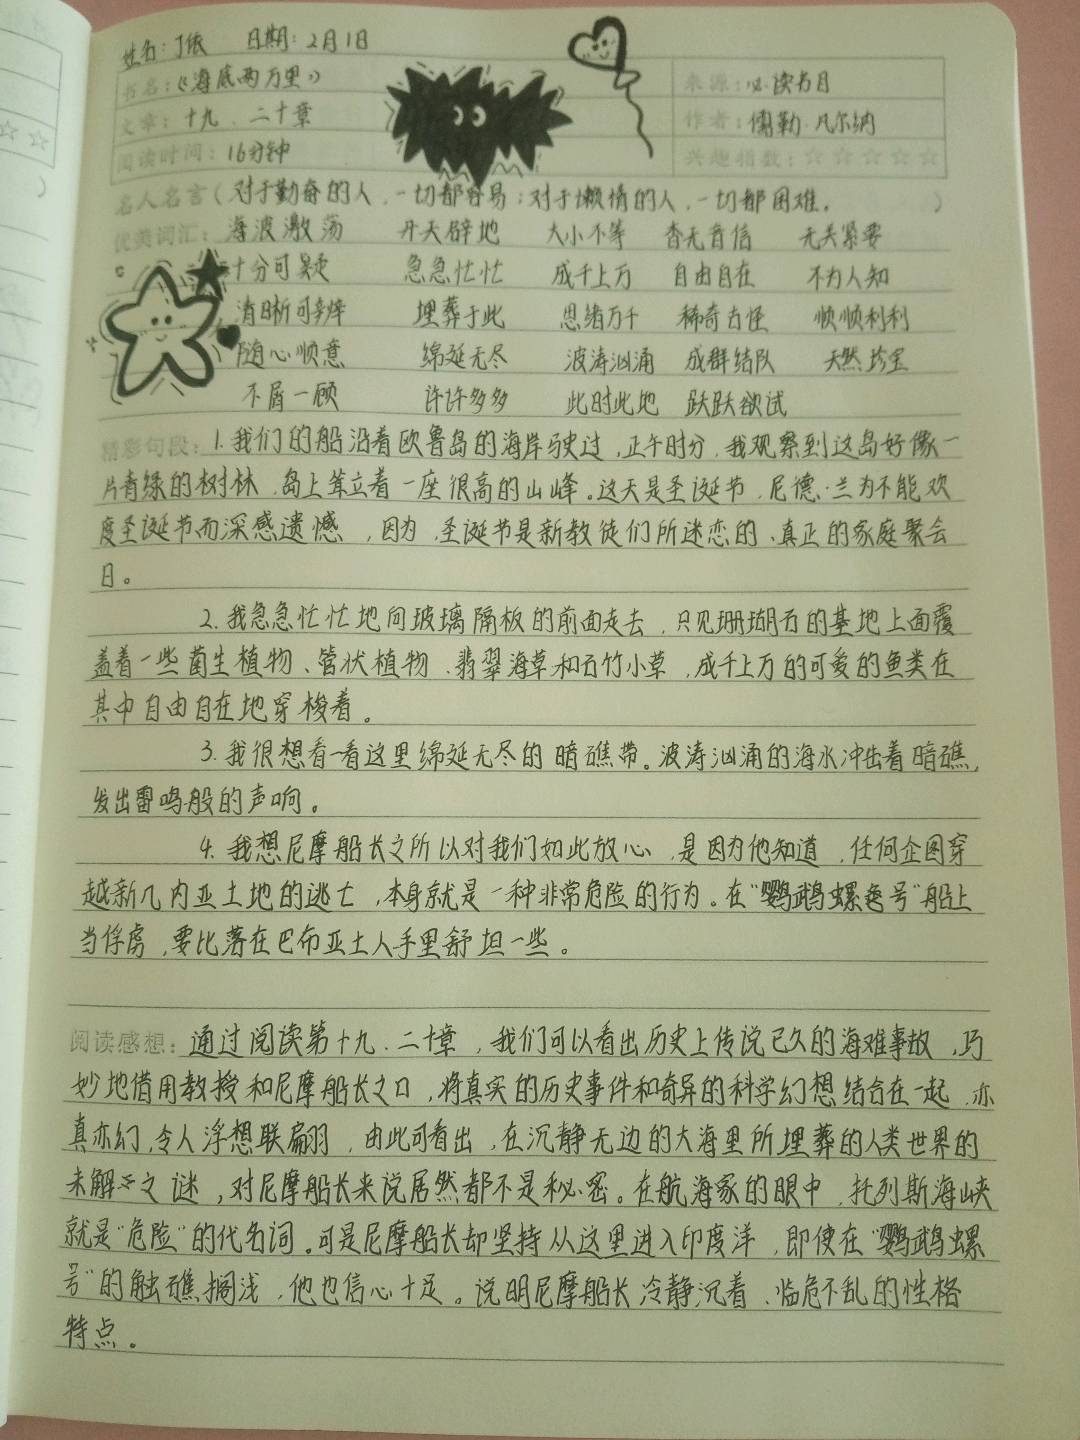 姓名：丁依 日期：2月1日
书名：《海底两万里》 来源：必读书目
文章：十九、二十章 作者：儒勒·凡尔纳
阅读时间：16分钟 兴趣指数：☆☆☆☆☆
名人名言（对于勤奋的人，一切都容易；对于懒惰的人，一切都困难。）
优美词汇：海波激荡 开天辟地 大小不等 杳无音信 无关紧要
十分可疑 急急忙忙 成千上万 自由自在 不为人知
清晰可辨 埋葬于此 思绪万千 稀奇古怪 顺顺利利
随心顺意 绵延无尽 波涛汹涌 成群结队 天然珍宝
不屑一顾 许许多多 此时此地 跃跃欲试
精彩句段：1.我们的船沿着欧鲁岛的海岸驶过，正午时分，我观察到这岛好像一
片青绿的树林，岛上耸立着一座很高的山峰。这天是圣诞节，尼德·兰为不能欢
度圣诞节而深感遗憾，因为，圣诞节是新教徒们所迷恋的、真正的家庭聚会
日。
2.我急急忙忙地向玻璃隔板的前面走去，只见珊瑚石的基地上面覆
盖着一些菌生植物、管状植物、翡翠海草和石竹小草，成千上万的可爱的鱼类在
其中自由自在地穿梭着。
3.我很想看一看这里绵延无尽的暗礁带。波涛汹涌的海水冲击着暗礁，
发出雷鸣般的声响。
4.我想尼摩船长之所以对我们如此放心，是因为他知道，任何企图穿
越新几内亚土地的逃亡，本身就是一种非常危险的行为。在“鹦鹉螺号”船上
当俘虏，要比落在巴布亚土人手里舒坦一些。
阅读感想：通过阅读第十九、二十章，我们可以看出历史上传说已久的海难事故，巧
妙地借用教授和尼摩船长之口，将真实的历史事件和奇异的科学幻想结合在一起，亦
真亦幻，令人浮想联翩，由此可看出，在沉静无边的大海里所埋葬的人类世界的
未解之谜，对尼摩船长来说居然都不是秘密。在航海家的眼中，托列斯海峡
就是“危险”的代名词。可是尼摩船长却坚持从这里进入印度洋，即使在“鹦鹉螺
号”的触礁搁浅，他也信心十足。说明尼摩船长冷静沉着、临危不乱的性格
特点。